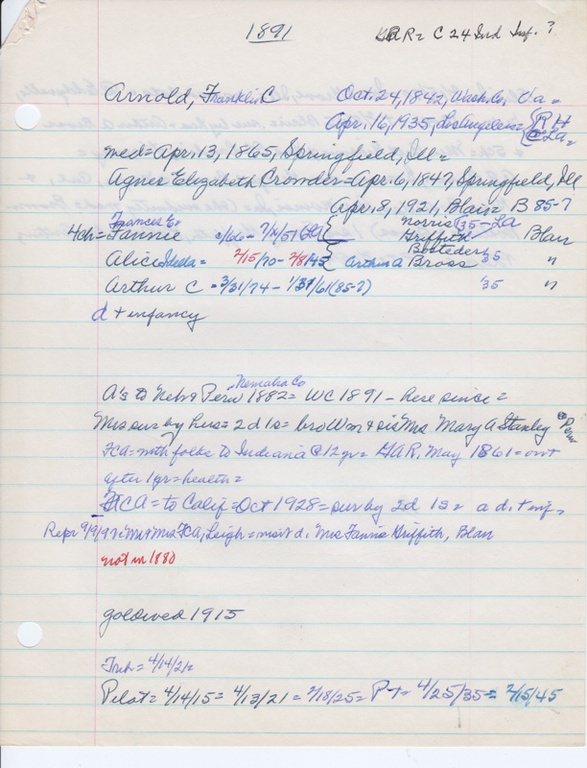 1891
GAR= C 24 Ind Inf. ?
Arnold, Franklin C Oct. 24, 1842, Wash Co, Va =
Apr. 16, 1935, Los Angeles = RH @ La =
med = Apr. 13, 1865, Springfield, Ill =
Agnes Elizabeth Crowder = Apr. 6, 1847, Springfield, Ill
Apr. 8, 1921, Blair = B 85-7
Frances E. Norris '35 - La
4 ch = Fannie 2/66 - 7/4/57 Griffith Blair
Bosteder
Alice = 2/15/70 - 2/8/45 Arthur A Bross '35 "
Arthur C = 3/31/74 - 1/31/61 (85-7) '35 "
d + infancy
Nemaha Co
A's to Neb & Peru 1882 = WC 1891 - here since =
Mrs sur by hus = 2 d 1 s = bro Wm & sis Mrs Mary A Stanley @ Peru
FCA = with folks to Indiana @ 12 yr = GAR, May 1861 = out
after 1 yr = health =
FCA = to Calif = Oct 1928 = sur by 2d 1s = a d. + inf =
Repr 9/9/97: Mr & Mrs FCA, Leigh = mar d. Mrs Fannie Griffith, Blair
not in 1880
gold wed 1915
Trib = 4/14/21 =
Pilot = 4/14/15 = 4/13/21 = 2/18/25 = P-T = 4/25/35 = 2/15/45